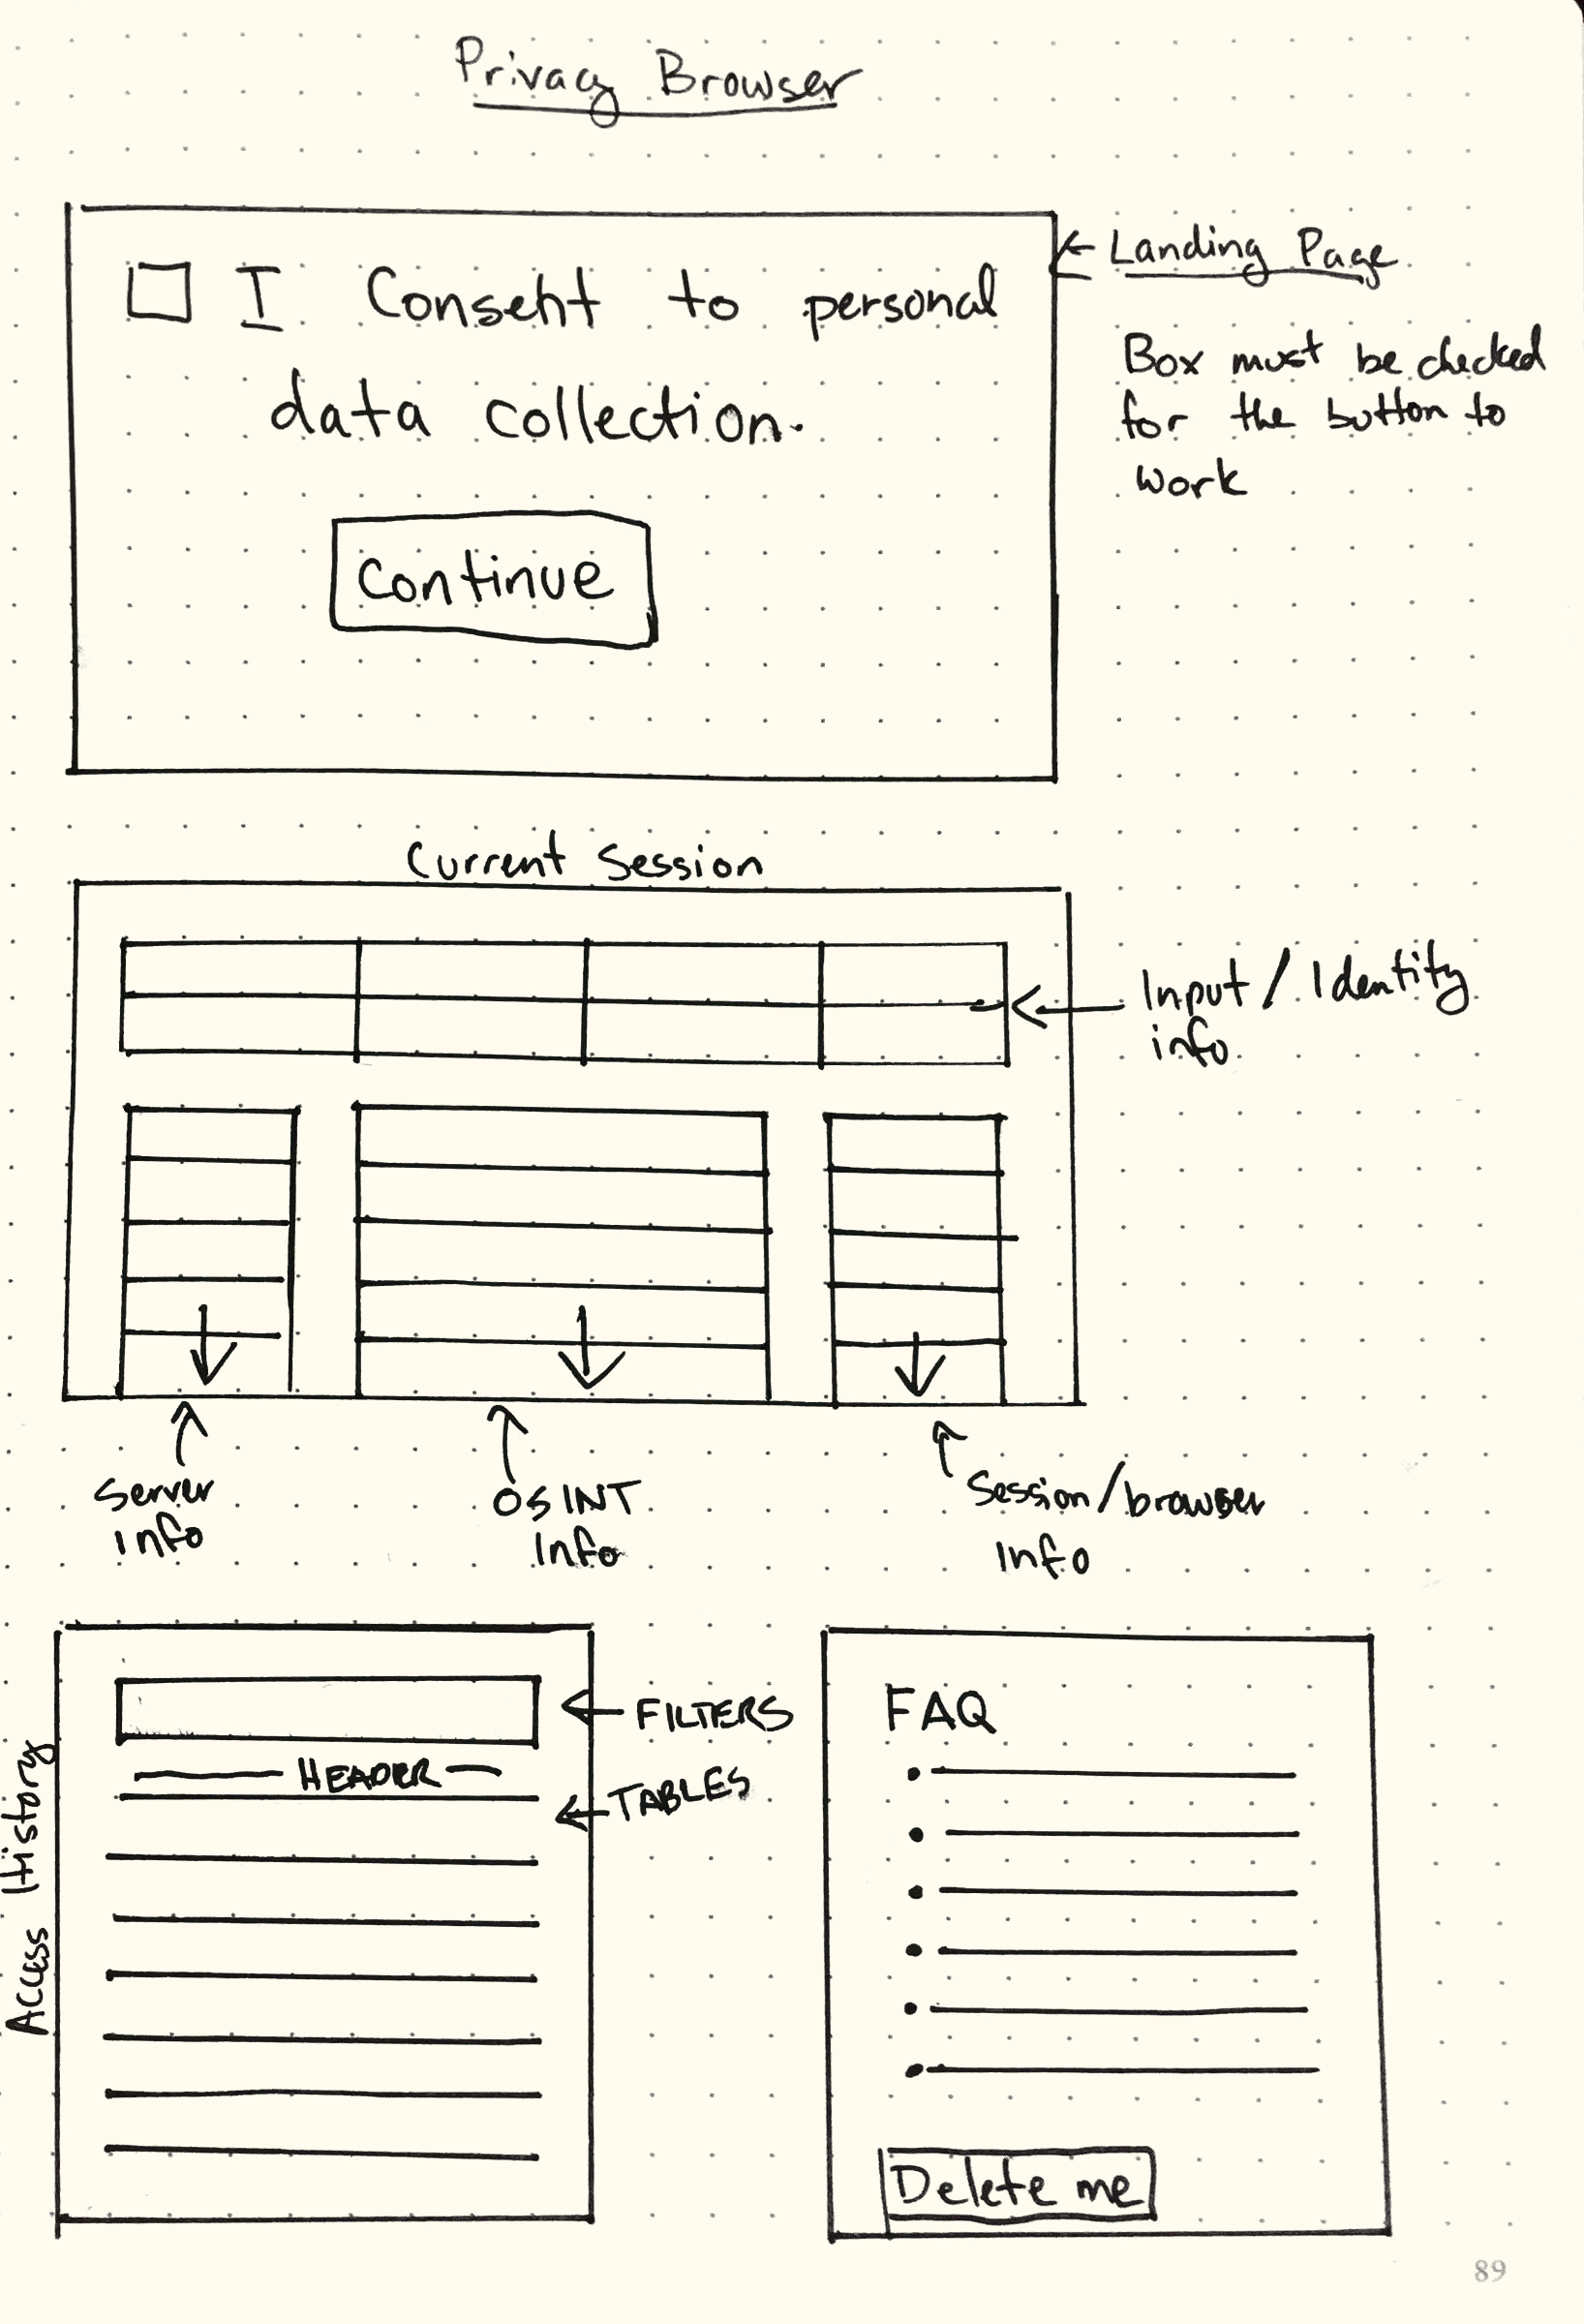 Privacy Browser
I Consent to personal
data collection.
Continue
Landing Page
Box must be checked
for the button to
work
Current Session
Input / Identity
info
Server
info
OSINT
Info
Session/browser
Info
Access History
FILTERS
HEADER
TABLES
FAQ
Delete me
89